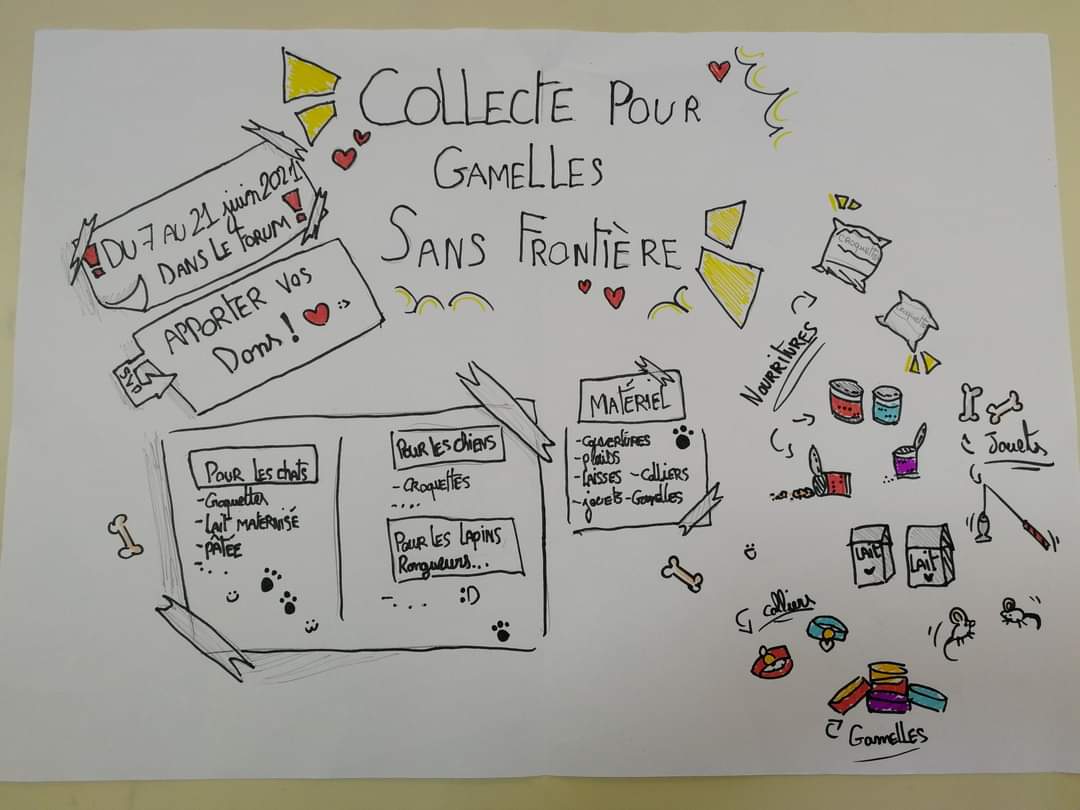 COLLECTE POUR
GAMELLES
SANS FRONTIÈRE
DU 7 AU 21 juin 2021
DANS LE FORUM
APPORTER VOS
Dons !
SVP
POUR LES CHATS
- Croquettes
- LAIT MATERNISÉ
- PÂTÉE
- ....
POUR LES CHIENS
- CROQUETTES
- ....
POUR LES LAPINS
Rongueurs...
- .... :D
MATÉRIEL
- COUVERTURES
- plaids
- LAISSES - Colliers
- jouets - Gamelles
NOURRITURES
CROQUETTE
CROQUETTE
Jouets
LAIT
LAIT
Colliers
Gamelles